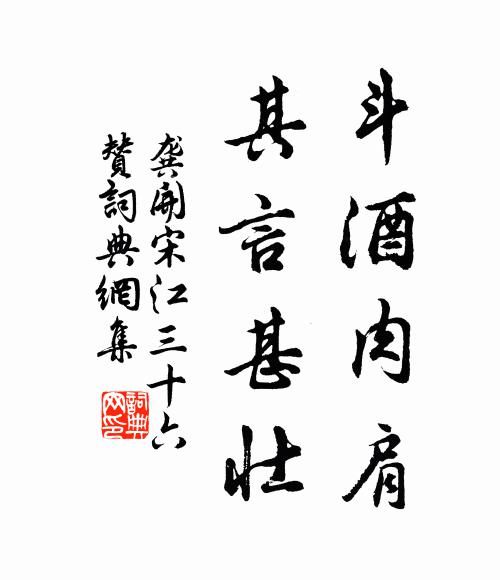 斗酒肉肩
其言甚壮
龔開宋江三十六
贊詞典網集
詞典
网印